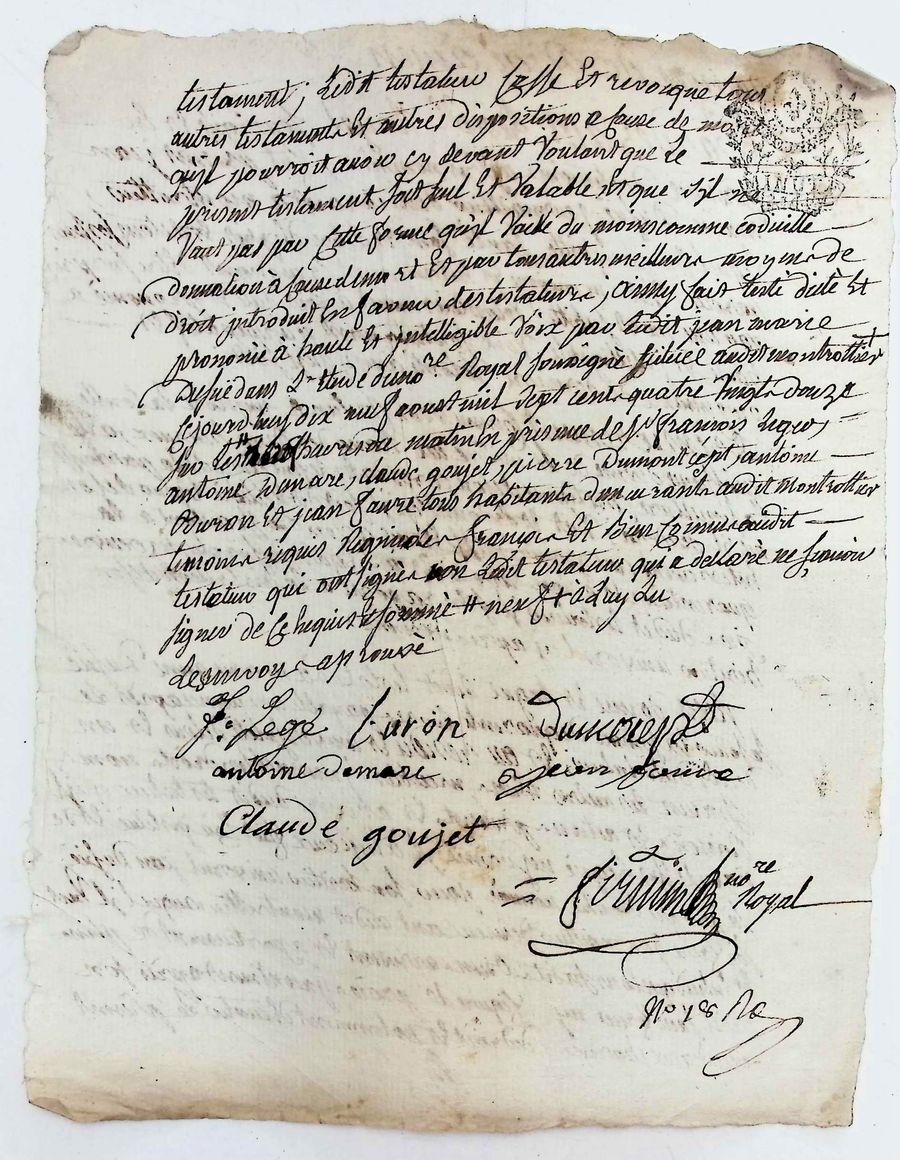 testament; Ledit testateur Casse Et revocque tous
autres testaments Et autres dispositions a Cause de mo
qu'jl pourroit avoir cy devant Voulant que Le
present testament soit seul Et Valable Et que s'jl ne
Vaut pas par Cette forme qu'jl Vaille du moins comme codicille
donnation à Cause de mort Et par tous autres meilleurs moyens de
droit jntroduit En faveur des testateurs, ainsy fait testé dicté Et
prononcé à haute Et jntelligible Voix par Ledit jean marie
dans L'etude du no.re Royal soussigné audit montrottier
Cejourdhuy dix neuf aoust mil sept cent quatre Vingt douze
sur Les heures du matin En presence de s.r françois Legés,
antoine Dumare, claude goujet, pierre Dumont cept, antoine
Buron Et jean faure tous habitants demeurants audit montrottier
temoins requis Regnicoles françois Et bien Connus audit
testateur qui ont signés non Ledit testateur qui a declaré ne sçavoir
signer de Ce requis Et sommé # neuf # à Luy Lu
Les renvoys aprouvé
f: Legé buron Dumont
antoine Dumare jean faure
Claude goujet
no.re Royal